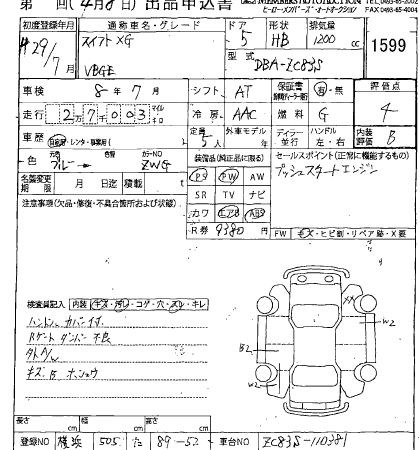 第 回(4月8日)出品申込書
MEMBERS AUTO AUCTION
ヒーローメンバーズ・オートオークション FAX 0493-65-4004
初度登録年月 通称車名・グレード ドア 形状 排気量
H29/7月 スイフト XG 5 HB 1200 cc 1599
VBGE 型式 DBA-ZC83S
車検 8年7月 シフト AT 保証書 有・無 評価点
走行 2万7千003 マイル キロ 冷房 AAC 燃料 G 4
車歴 自家用・レンタ・事業用( ) 定員 5人 外車モデル 年 ディーラー 並行 ハンドル 左・右 内装評価 B
色 元色 ブルー→ 色替 カラーNO ZWG 装備品(純正品に限る) セールスポイント(正常に機能するもの)
名義変更期限 月 日迄 積載 t PS PW AW プッシュスタートエンジン
注意事項(欠品・修復・不具合箇所および状態) SR TV ナビ
カワ エアB ABS
R券 9380円 FW キズ・ヒビ割・リペア跡・X要
検査員記入 内装 キズ・汚レ・コゲ・穴・スレ・キレ
ハンドル カバー付
Rゲート ダンパー不良
タトA/L
キズ B ホシュウ
XX
W2
B2
W2
長さ cm 幅 cm 高さ cm
登録NO 横浜 505 た 89-52 車台NO ZC83S-110381